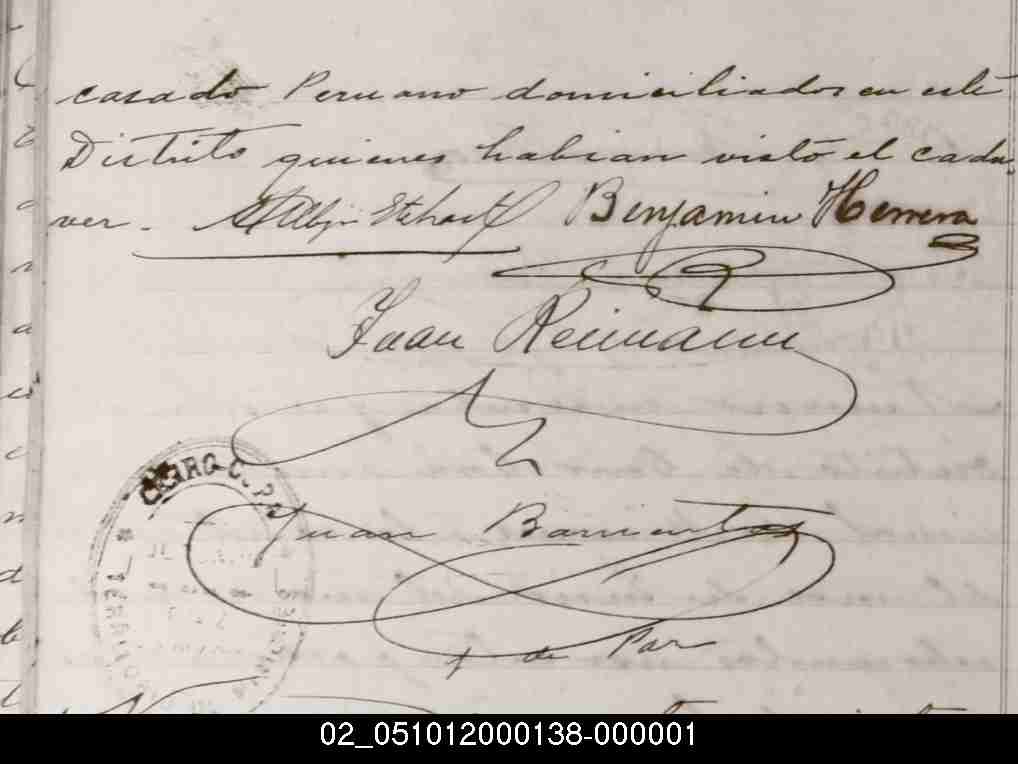 casado Peruano domiciliados en este
Distrito quienes habian visto el cada-
ver. Benjamin Herrera
Juan Reimann
Juan Barrientos
02_051012000138-000001